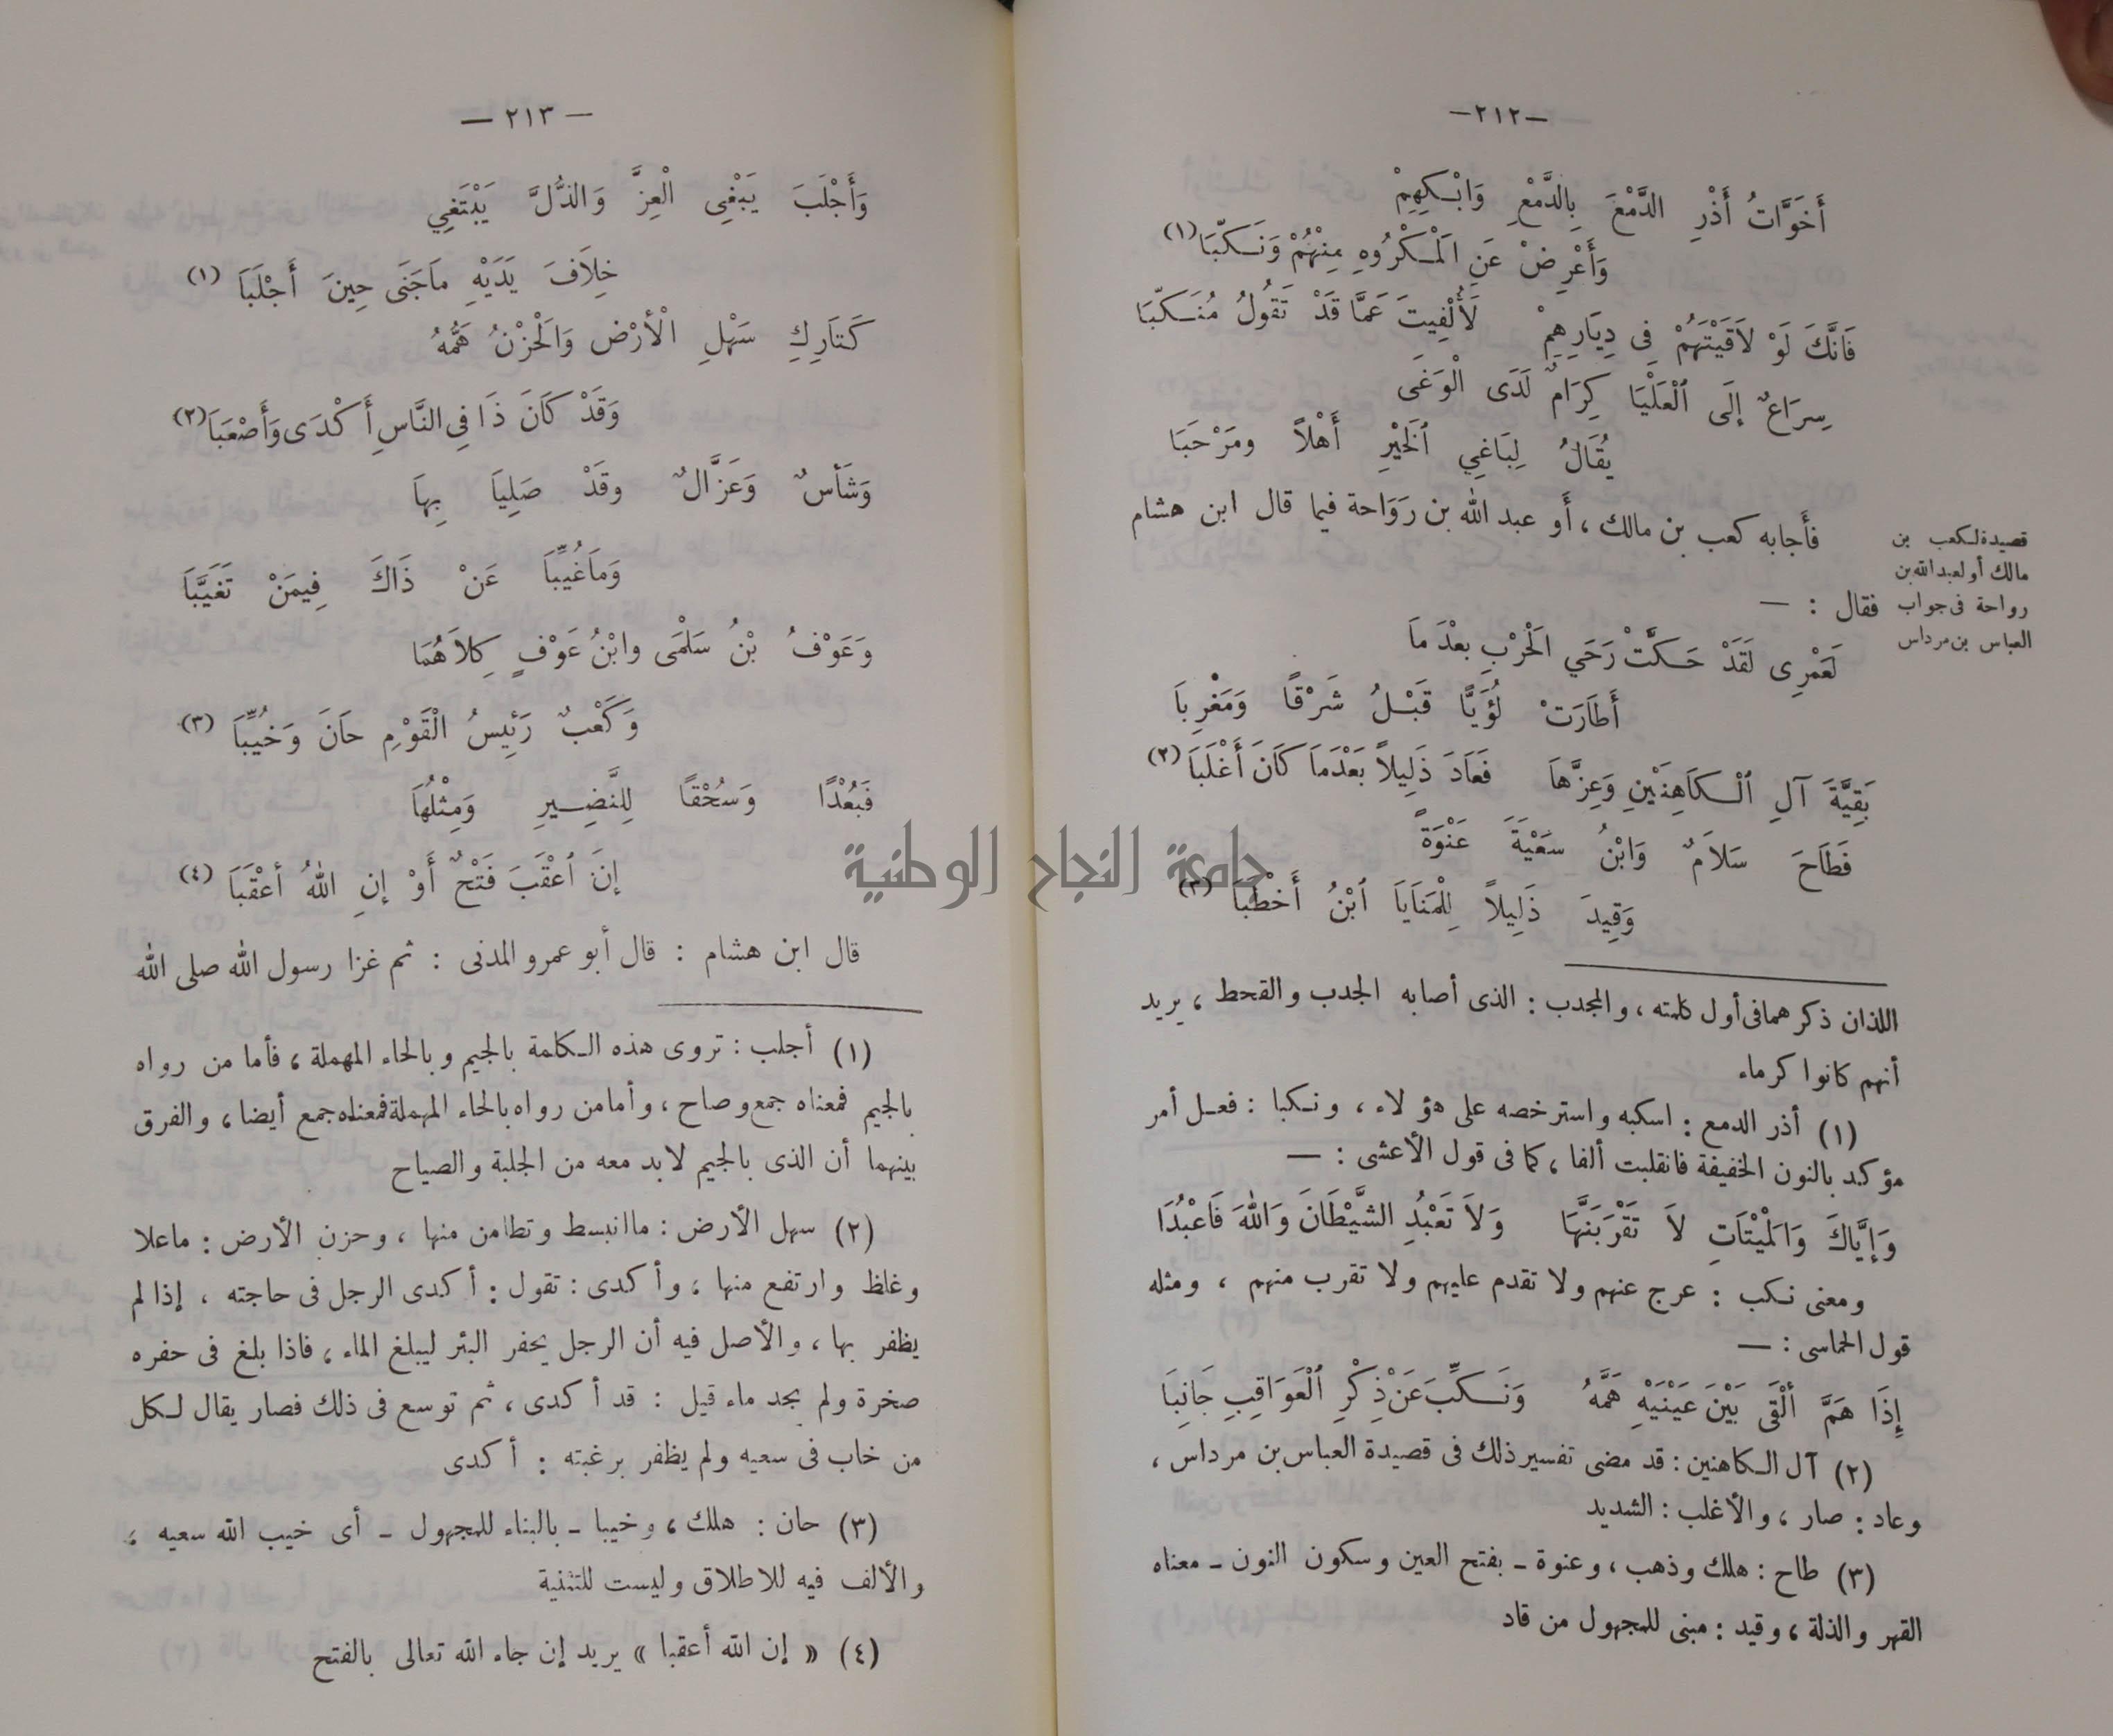 —٢١٢—
أَخَوَّاتُ أَذْرِ الدَّمْعَ بِالدَّمْعِ وَابْكِهِمْ
وَأَعْرِضْ عَنِ الْمَكْرُوهِ مِنْهُمْ وَنَكِّبَا (١)
فَانَّكَ لَوْ لاَقَيْتَهُمْ فِى دِيَارِهِمْ لَأُلْفِيتَ عَمَّا قَدْ تَقُولُ مُنَكِّبَا
سِرَاعٌ إِلَى ٱلْعَلْيَا كِرَامٌ لَدَى الْوَغَى
يُقَالُ لِبَاغِي ٱلْخَيْرِ أَهْلاً ومَرْحَبَا
فأَجابه كعب بن مالك ، أَو عبد الله بن رَوَاحة فيما قال ابن هشام
فقال : —
قصيدة لكعب بن
مالك أو لعبد الله بن
رواحة فى جواب
العباس بن مرداس
لَعَمْرِى لَقَدْ حَكَّتْ رَحَي الْحَرْبِ بعْدَ مَا
أَطَارَتْ لُؤَيًّا قَبْلُ شَرْقًا وَمَغْرِبَا
بَقِيَّةَ آلِ ٱلْكَاهِنَيْنِ وَعِزَّهَا فَعَادَ ذَلِيلاً بَعْدَمَا كَانَ أَغْلَبَا (٢)
فَطَاحَ سَلاَمٌ وَابْنُ سَعْيَةَ عَنْوَةً
وَقِيدَ ذَلِيلاً لِلْمَنَايَا ٱبْنُ أَخْطَبَا (٣)
اللذان ذكرهما فى أول كلمته ، والمجدب : الذى أصابه الجدب والقحط ، يريد
أنهم كانوا كرماء
(١) أذر الدمع : اسكبه واسترخصه على هؤلاء ، ونكبا : فعل أمر
مؤكد بالنون الخفيفة فانقلبت ألفا ، كما فى قول الأعشى : —
وَإِيَّاكَ وَالْمَيْتَاتِ لاَ تَقْرَبَنَّهَا وَلاَ تَعْبُدِ الشَّيْطَانَ وَاللهَ فَاعْبُدَا
ومعنى نكب : عرج عنهم ولا تقدم عليهم ولا تقرب منهم ، ومثله
قول الحماسى : —
إِذَا هَمَّ أَلْقَى بَيْنَ عَيْنَيْهِ هَمَّهُ وَنَكِّبَ عَنْ ذِكْرِ ٱلْعَوَاقِبِ جَانِبَا
(٢) آل الكاهنين : قد مضى تفسير ذلك فى قصيدة العباس بن مرداس ،
وعاد : صار ، والأغلب : الشديد
(٣) طاح : هلك وذهب ، وعنوة - بفتح العين وسكون النون - معناه
القهر والذلة ، وقيد : مبنى للمجهول من قاد
— ٢١٣ —
وَأَجْلَبَ يَبْغِى الْعِزَّ وَالذُّلَّ يَبْتَغِي
خِلاَفَ يَدَيْهِ مَاجَنَى حِينَ أَجْلَبَا (١)
كَتَارِكِ سَهْلِ الْأَرْضِ وَالْحَزْنُ هَمُّهُ
وَقَدْ كَانَ ذَا فِى النَّاسِ أَكْدَى وَأَصْعَبَا (٢)
وَشَأسٌ وَعَزَّالٌ وقَدْ صَلِيَا بِهَا
وَمَا غُيِّبَا عَنْ ذَاكَ فِيمَنْ تَغَيَّبَا
وَعَوْفُ بْنُ سَلْمَى وابْنُ عَوْفٍ كِلاَهُمَا
وَكَعْبٌ رَئِيسُ الْقَوْمِ حَانَ وَخُيِّبَا (٣)
فَبُعْدًا وَسُحْقًا لِلنَّضِيرِ وَمِثْلُهَا
إنَ ٱعْقَبَ فَتْحٌ أَوْ إنِ اللهُ أعْقَبَا (٤)
قال ابن هشام : قال أبو عمرو المدنى : ثم غزا رسول الله صلى الله
(١) أجلب : تروى هذه الكلمة بالجيم وبالحاء المهملة ، فأما من رواه
بالجيم فمعناه جمع وصاح ، وأما من رواه بالحاء المهملة فمعناه جمع أيضا ، والفرق
بينهما أن الذى بالجيم لابد معه من الجلبة والصياح
(٢) سهل الأرض : ما انبسط وتطامن منها ، وحزن الأرض : ماعلا
وغلظ وارتفع منها ، وأكدى : تقول : أكدى الرجل فى حاجته ، إذا لم
يظفر بها ، والأصل فيه أن الرجل يحفر البئر ليبلغ الماء ، فاذا بلغ فى حفره
صخرة ولم يجد ماء قيل : قد أكدى ، ثم توسع فى ذلك فصار يقال لكل
من خاب فى سعيه ولم يظفر برغبته : أكدى
(٣) حان : هلك ، وخيبا - بالبناء للمجهول - أى خيب الله سعيه ،
والألف فيه للاطلاق وليست للتثنية
(٤) « إن الله أعقبا » يريد إن جاء الله تعالى بالفتح
جامعة النجاح الوطنية